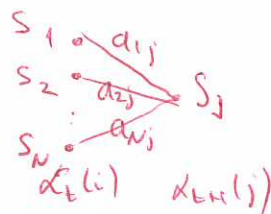 S1 a1j
S2 a2j Sj
:
SN aNj
αt(i) αt+1(j)